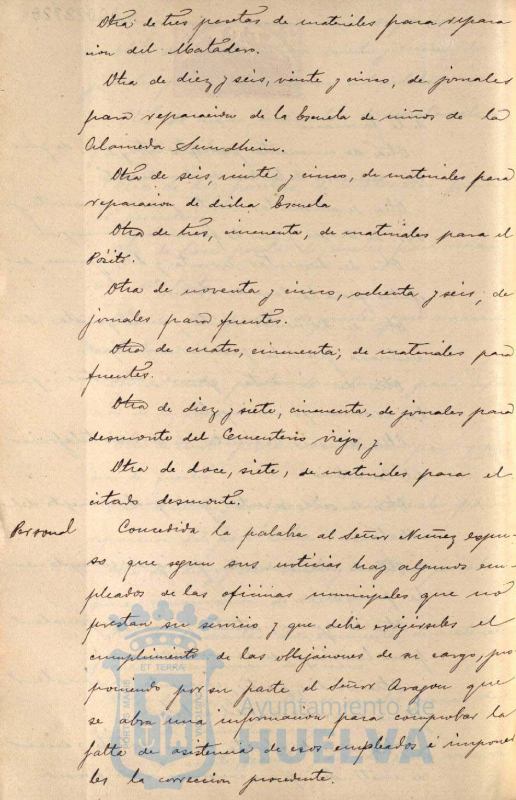 Otra de tres pesetas de materiales para repara
cion del Matadero.
Otra de diez y seis, veinte y cinco, de jornales
para reparacion de la Escuela de niños de la
Alameda Sundheim.
Otra de seis, veinte y cinco, de materiales para
reparacion de dicha Escuela
Otra de tres, cincuenta, de materiales para el
Pósito.
Otra de noventa y cinco, ochenta y seis, de
jornales para fuentes.
Otra de cuatro, cincuenta, de materiales para
fuentes.
Otra de diez y siete, cincuenta, de jornales para
desmonte del Cementerio viejo, y
Otra de doce, siete, de materiales para el
citado desmonte.
Personal
Concedida la palabra al Señor Nuñez expu-
so que segun sus noticias hay algunos em-
pleados de las oficinas municipales que no
prestan su servicio y que debia exigírseles el
cumplimiento de las obligaciones de su cargo, pro
poniendo por su parte el Señor Aragon que
se abra una informacion para comprobar la
falta de asistencia de esos empleados é imponer
les la correccion procedente.
PORTUS MARIS
ET TERRÆ
CUSTODIA
Ayuntamiento de
HUELVA